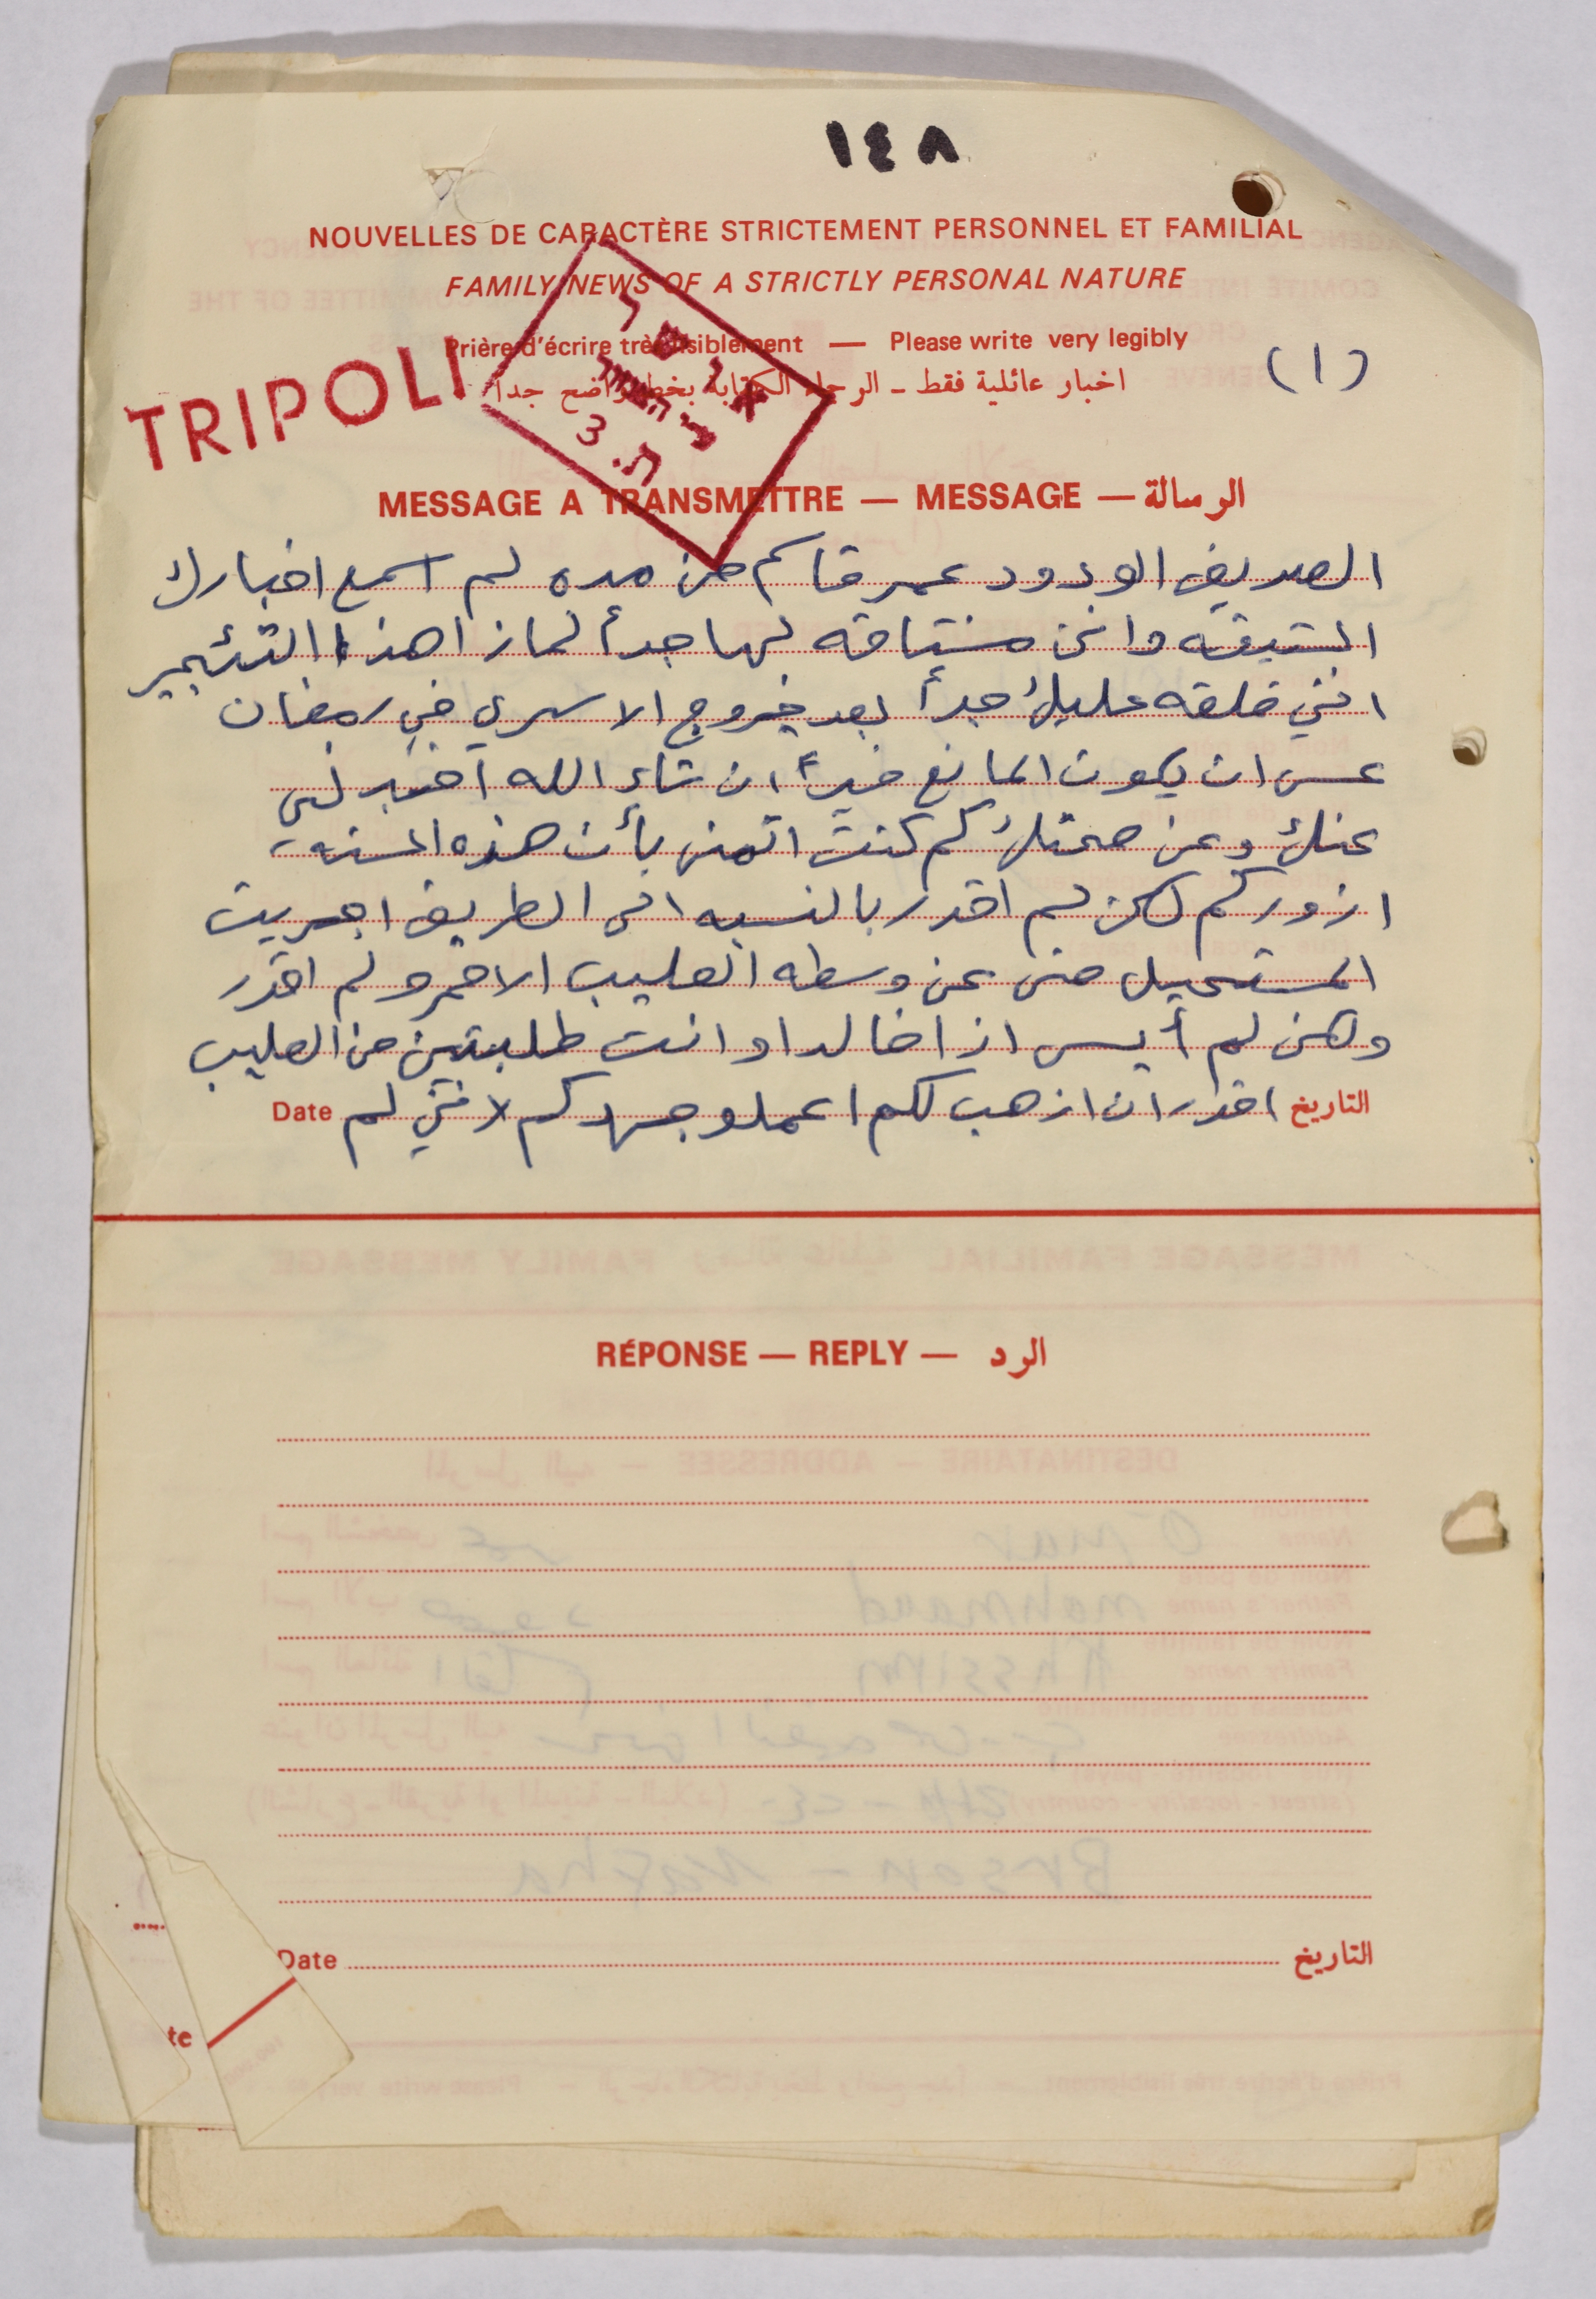 ١٤٨
NOUVELLES DE CARACTÈRE STRICTEMENT PERSONNEL ET FAMILIAL
FAMILY NEWS OF A STRICTLY PERSONAL NATURE
Prière d'écrire très lisiblement — Please write very legibly
اخبار عائلية فقط – الرجاء الكتابة بخط واضح جدا
(١)
TRIPOLI
MESSAGE A TRANSMETTRE — MESSAGE — الرسالة
الصديق الودود عمر قاسم من مده لم اسمع اخبارك
الشيقه وانني مشتاقه لها جدأ لماذا هذا
انني قلقه عليك جدأ بعد خروج الاسرى في رمضان
عسى ان يكون المانع خيرأ ان شاء الله اخبرني
عنك وعن صحتك كم كنت اتمنى بأن هذه السنه
ازوركم لكن لم اقدر بالنسبه الى الطريق اجريت
المستحيل حتى عن وسطه الصليب الاحمر ولم اقدر
ولكن لم أيس اذا خالد او انت طلبتني من الصليب
التاريخ اقدر ان اذهب لكم اعملو جهدكم لانني لم Date
RÉPONSE — REPLY — الرد
Date التاريخ
te